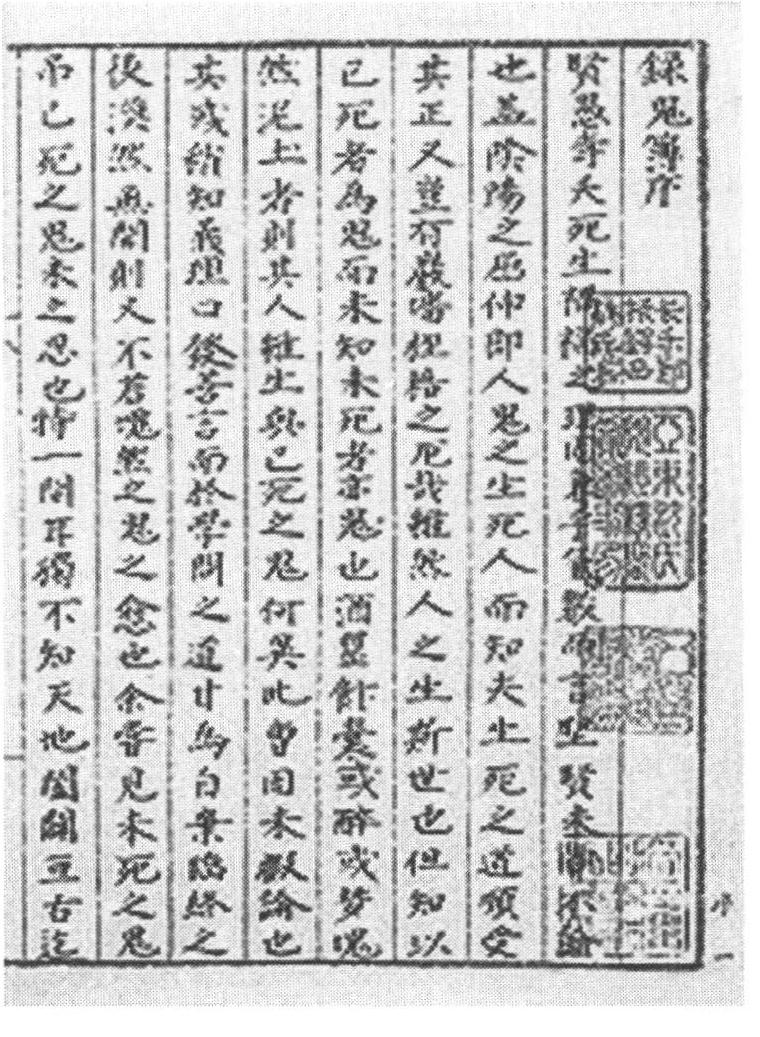 錄鬼簿序
賢愚壽夭死生禍福之理固兼乎氣數而言聖賢未嘗不論
也蓋陰陽之屈伸即人鬼之生死人而知夫生死之道順受
其正又豈有巖墻桎梏之厄哉雖然人之生斯世也但知以
已死者為鬼而未知未死者亦鬼也酒罌飯囊或醉或夢塊
然泥土者則其人雖生與已死之鬼何異此曾固未暇論也
其或稍知義理口發善言而於學問之道甘為自棄臨終之
後漠然無聞則又不若塊然之鬼之愈也余嘗見未死之鬼
吊已死之鬼未之思也特一間耳獨不知天地闔闢亙古迄
序
一